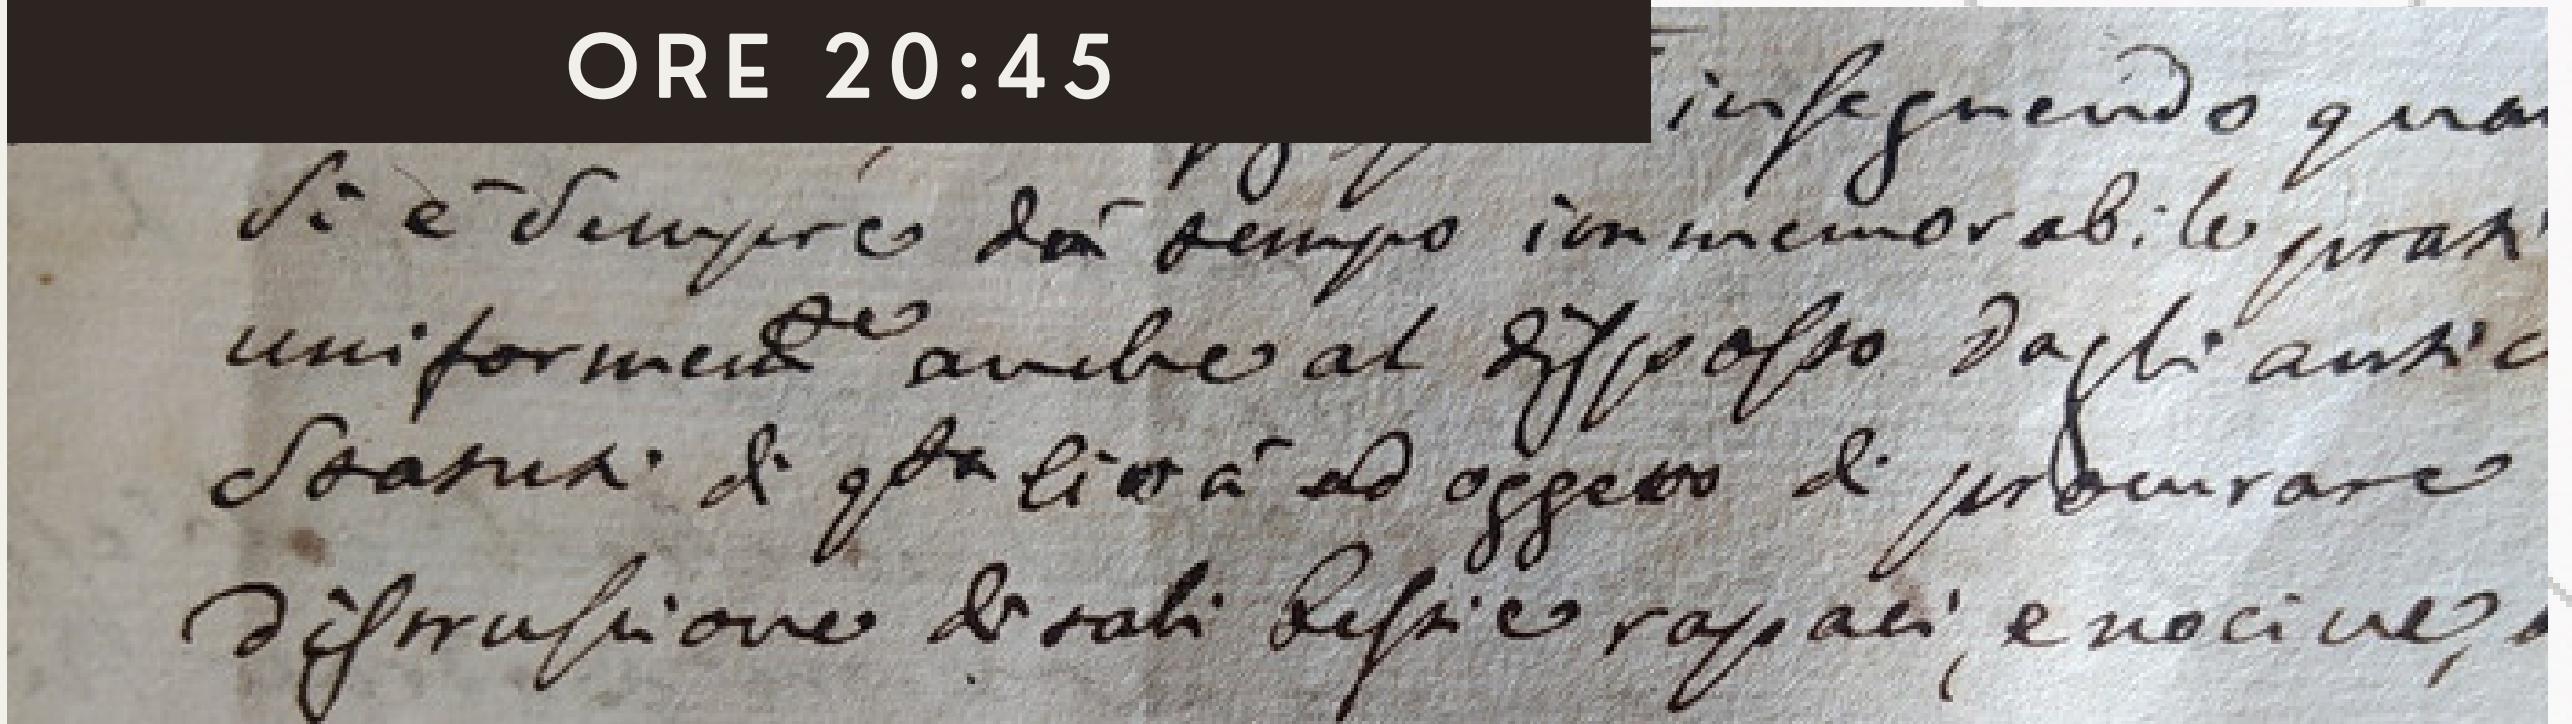 ORE 20:45
inseguendo
si è sempre dà tempo immemorabile
uniformem.te anche al disposto dagli
Statuti di q.sta Città ad oggetto di procurare
distruzione di tali bestie rapaci, e nocive,